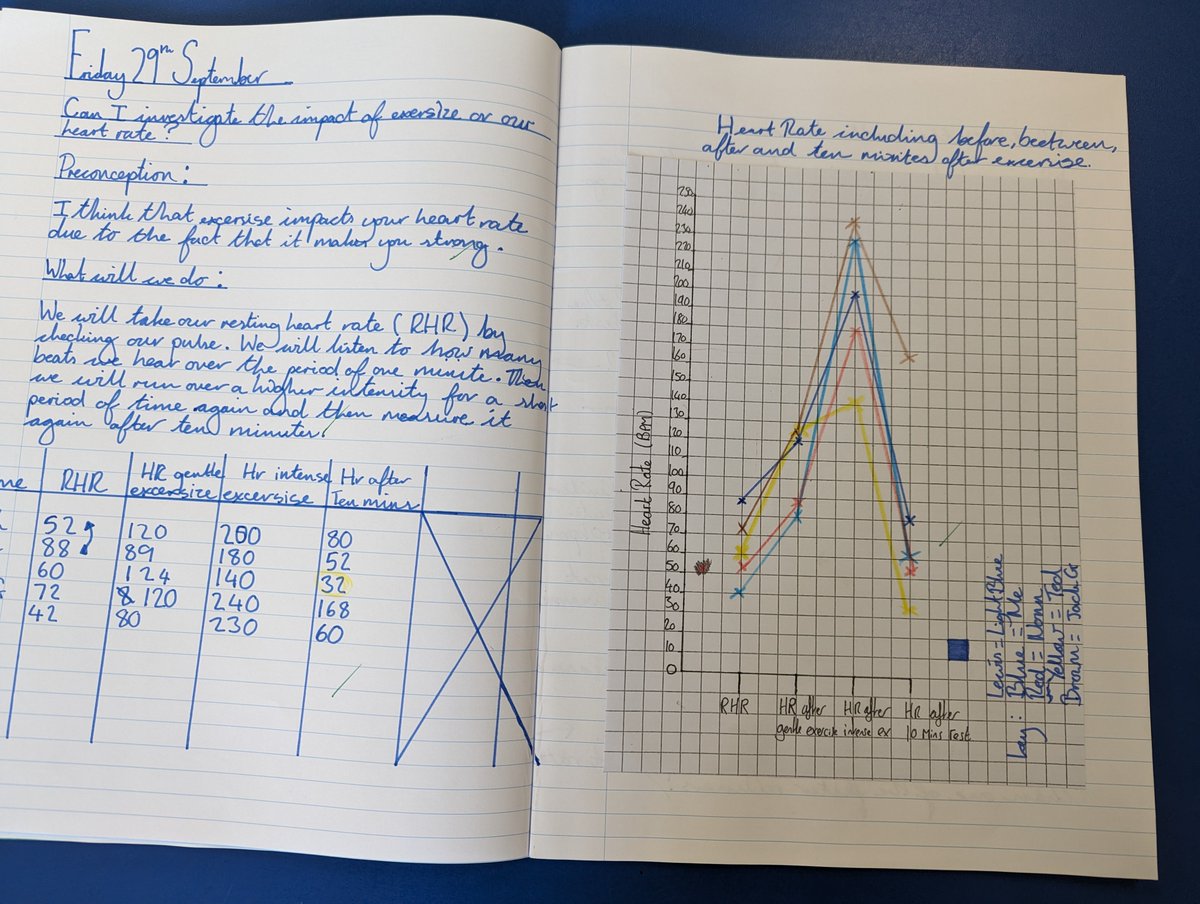 Friday 29th September
Can I investigate the impact of exersize or our
heart rate?
Preconception:
I think that excersise impacts your heart rate
due to the fact that it makes you strong.
What will we do:
We will take our resting heart rate (RHR) by
checking our pulse. We will listen to how many
beats we hear over the period of one minite. Then
we will run over a higher intensity for a short
period of time again and then measure it
again after ten minutes.
RHR HR gentle excersize Hr intense excersise Hr after Ten mins
52 120 200 80
88 89 180 52
60 124 140 32
72 120 240 168
42 80 230 60
Heart Rate including before, beetween,
after and ten minites after excerise.
Heart Rate (BPM)
250
240
230
220
210
200
190
180
170
160
150
140
130
120
110
100
90
80
70
60
50
40
30
20
10
0
RHR HR after gentle exercise HR after intense ex HR after 10 Mins rest
Key:
Lewin = Light Blue
Blue = Me
Red = Nonn
Yellow = Ted
Brown = Jack G